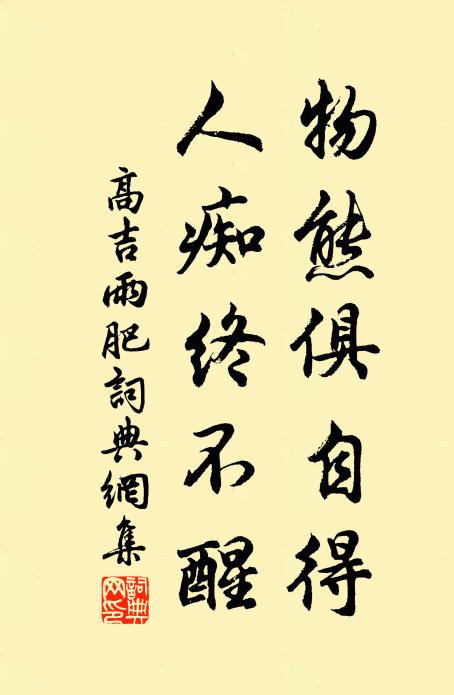 物態俱自得
人痴終不醒
高吉雨肥詞典網集
詞典
网印